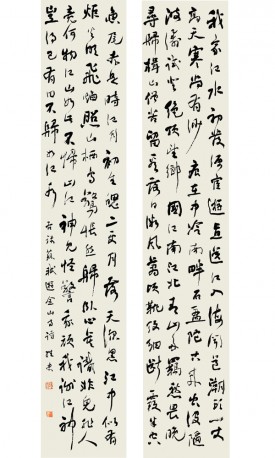 我家江水初發源宦遊直送江入海聞道潮頭一丈
高天寒尚有沙痕在中泠南畔石盤陀古來出沒隨
波濤試登絕頂望鄉國江南江北青山多羈愁畏晚
尋歸楫山僧苦留看落日微風萬頃靴紋細斷霞半空
魚尾赤是時江月初生魄二更月落天深黑江中似有
炬火明飛焰照山棲鳥驚悵然歸臥心莫識非鬼非人
竟何物江山如此不歸山江神見怪警我頑我謝江神
豈得已有田不歸如江水
蘇軾遊金山寺詩